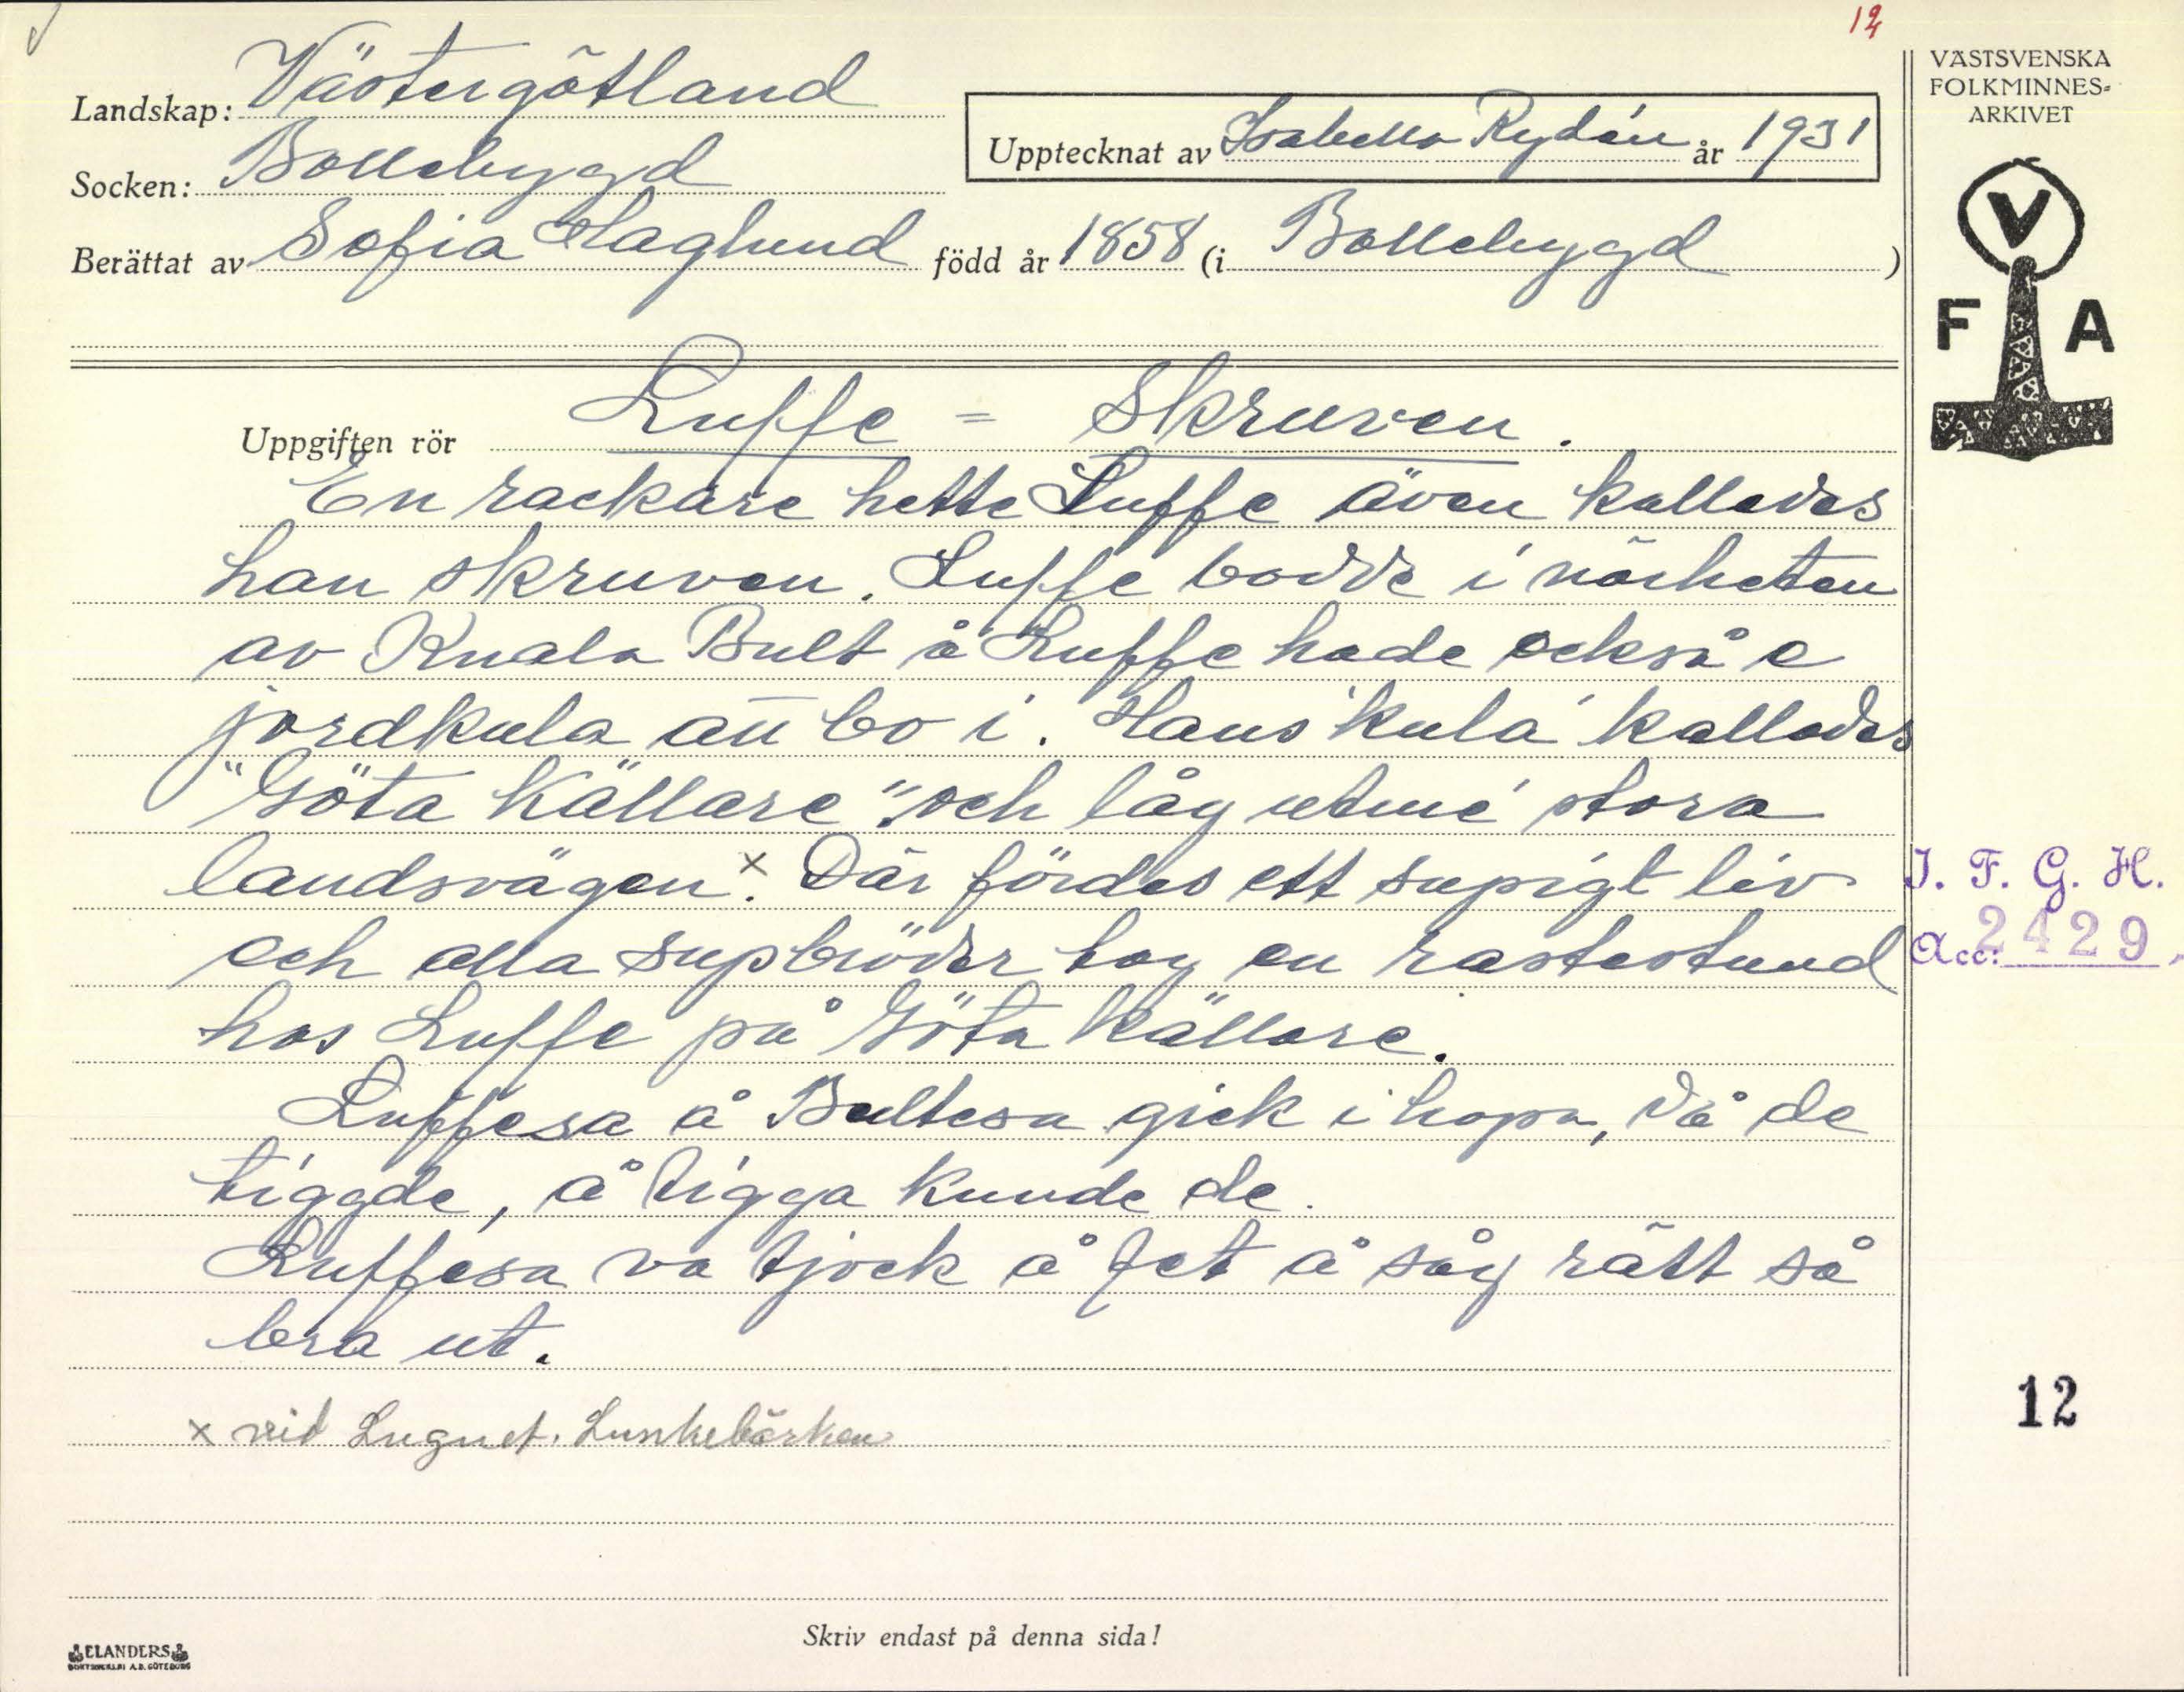 12
VÄSTSVENSKA
FOLKMINNES-
ARKIVET
Landskap: Västergötland
Upptecknat av Isabella Rydén år 1931
Socken: Bollebygd
Berättat av Sofia Haglund född år 1858 (i Bollebygd)
V
F A
Uppgiften rör Luffe = Skruven.
En rackare hette Luffe även kallades
han skruven. Luffe bodde i närheten
av Knala Bult å Luffe hade också e
jordkula att bo i. Hans 'kula' kallades
"Göta Källare". och låg utmé stora
landsvägen x. Där fördes ett supigt liv
och alla supbröder tog en rastestund
hos Luffe på Göta Källare.
Luffesa å Bultesa gick ihopa, då de
tiggde, å tigga kunde de.
Luffesa va tjock å fet å såg rätt så
bra ut.
x vid Lugnet.
I. F. G. H.
Acc: 2429.
12
Skriv endast på denna sida!
ELANDERS
BOKTRYCKERI A.B. GÖTEBORG